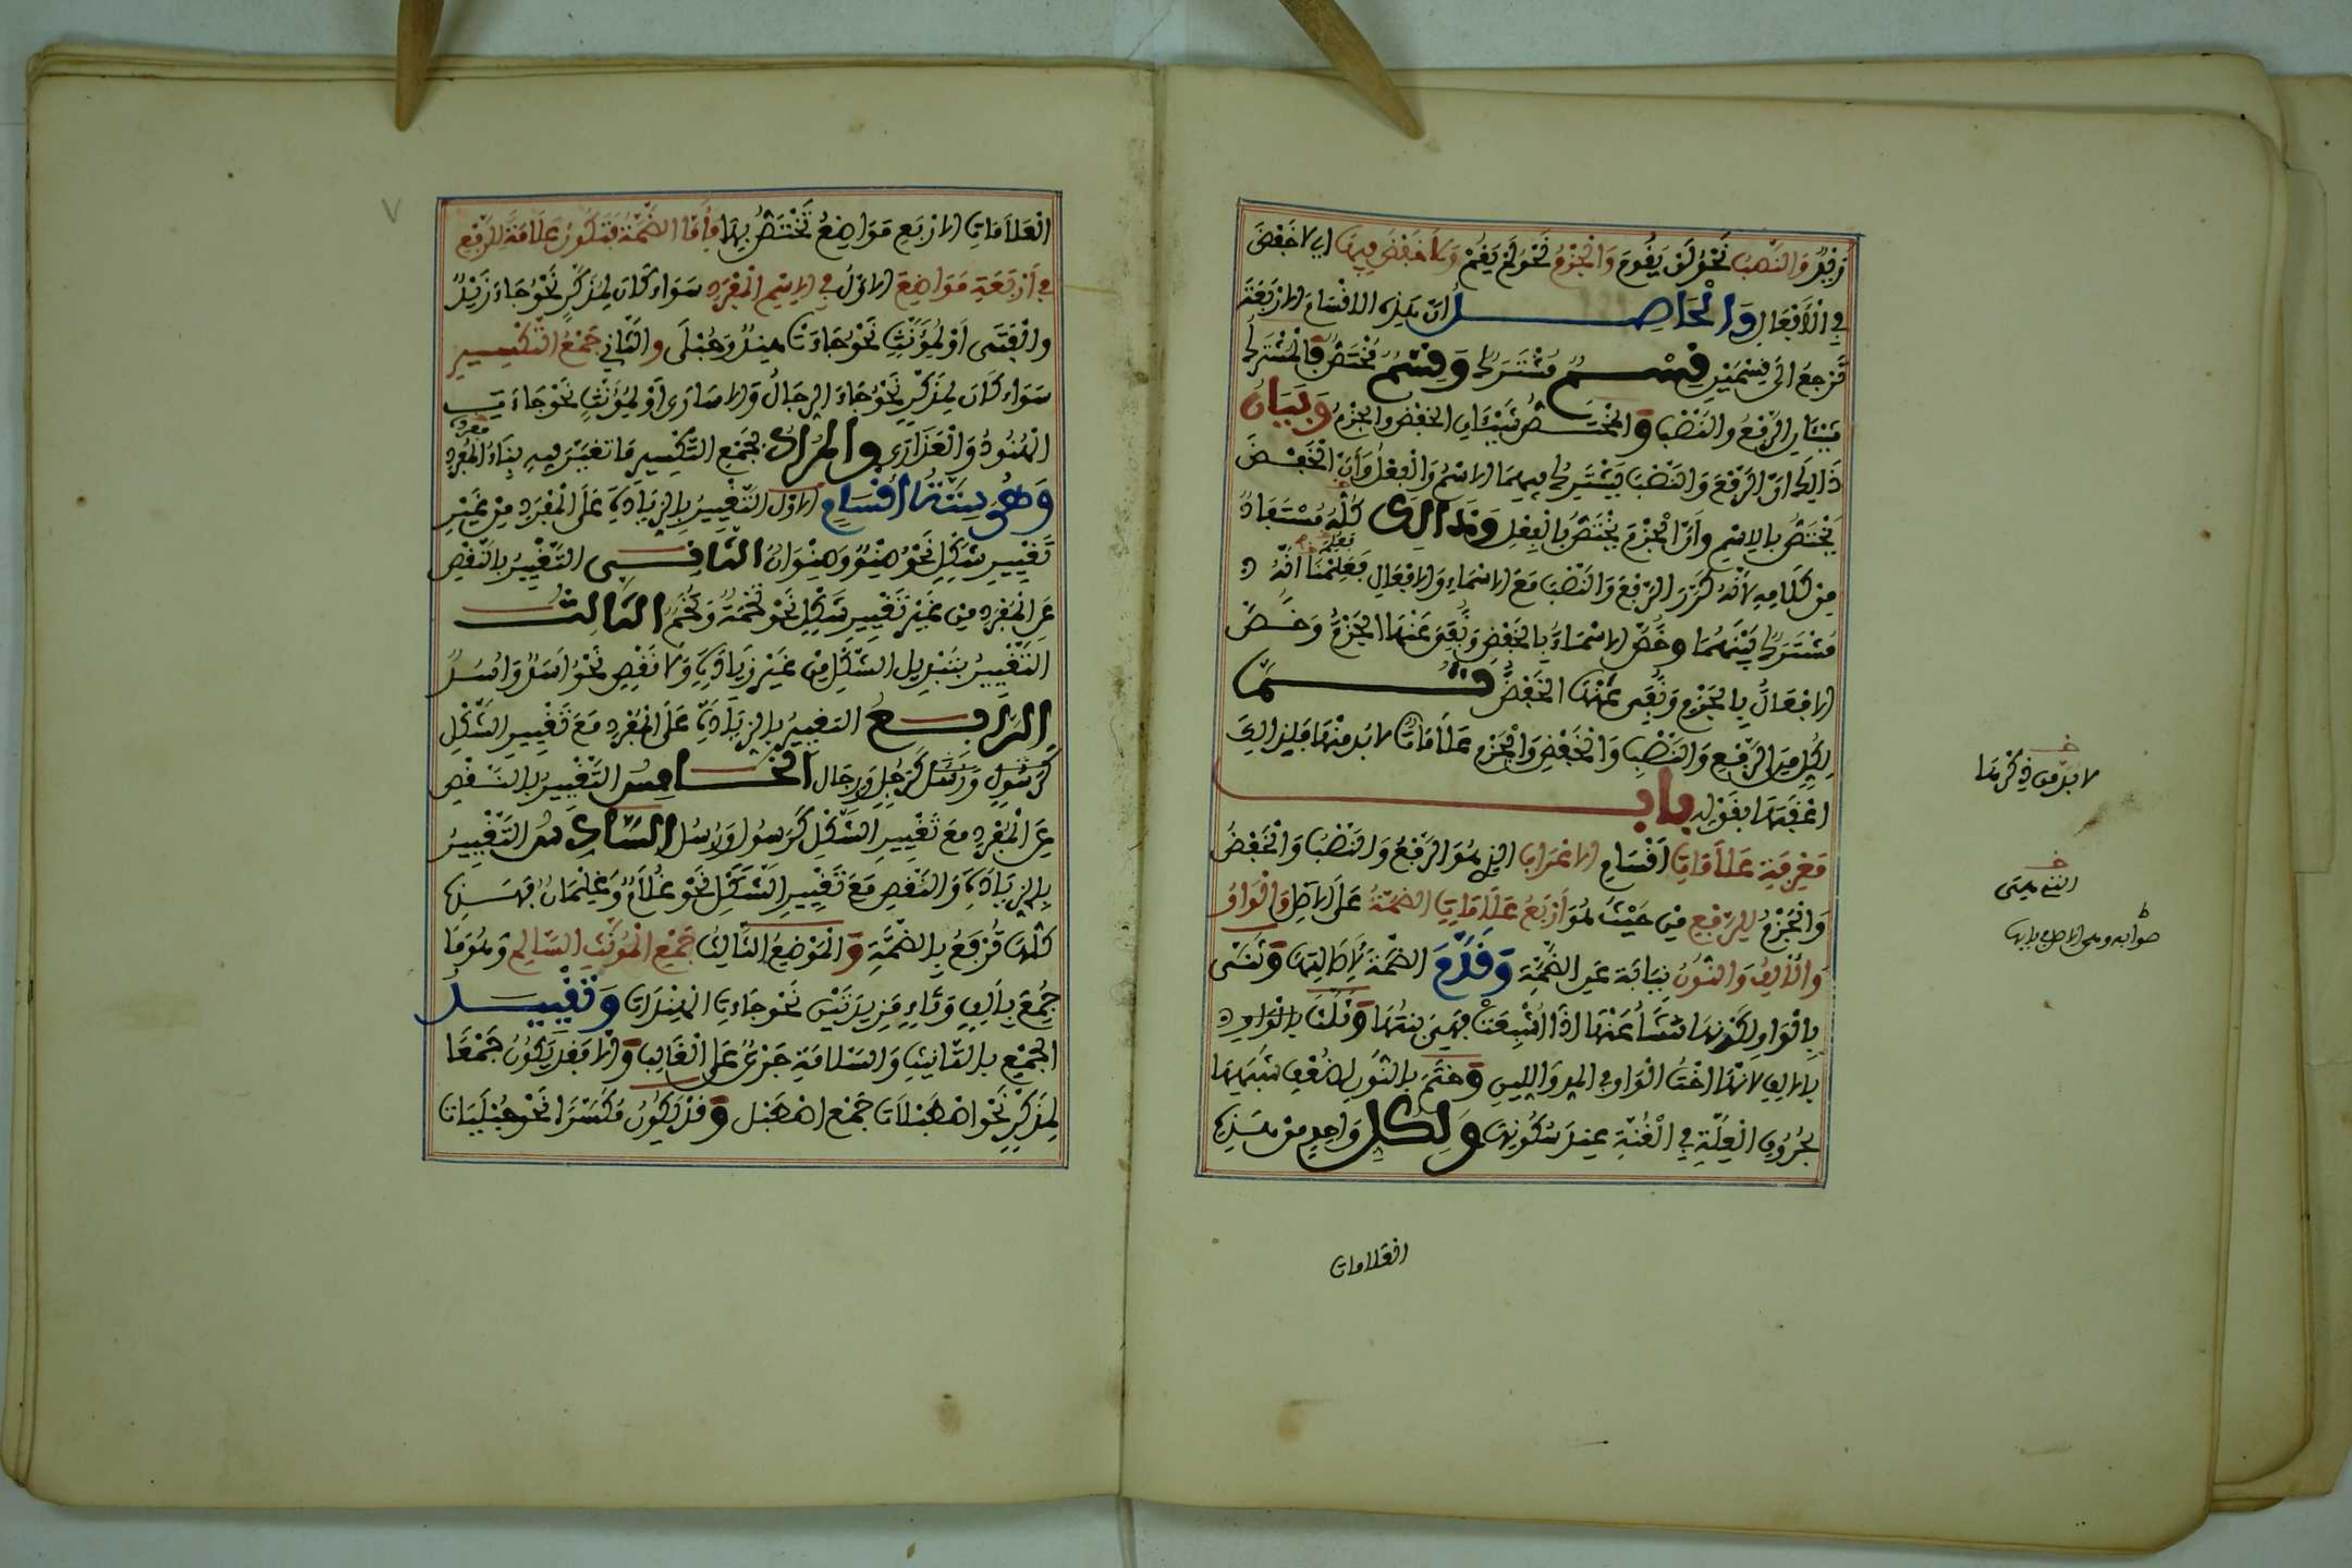 الرفع والنصب نحو لن يقوم والجزم نحو لم يقم ولا خفض فيها اي لا خفض
في الأفعال والحاصل ان هذه الاقسام الاربعة
ترجع الى قسمين قسم مشترك وقسم مختص فالمشترك
شيئان الرفع والنصب والمختص شيئان الخفض والجزم وبيان
ذالك ان الرفع والنصب يشترك فيهما الاسم والفعل وأن الخفض
يختص بالاسم وأن الجزم يختص بالفعل وذالك كله مستفاد
من كلامه لأنه كرر الرفع والنصب مع الاسماء والافعال فعلمنا انه
مشترك بينهما وخص الاسماء بالخفض ونفى عنها الجزم وخص
الافعال بالجزم ونفى عنها الخفض ثم
لكل من الرفع والنصب والخفض والجزم علامات لا بد منها فلذالك
اعقبها بقوله باب
معرفة علامات اقسام الاعراب الذي هو الرفع والنصب والخفض
والجزم للرفع من حيث هو أربع علامات الضمة على الاصل والواو
والألف والنون نيابة عن الضمة وقدم الضمة لأصالتها وثنى
بالواو لكونها تنشأ عنها اذا اشبعت فهي بنتها وثلث بالواو
بالالف لانها اخت الواو في المد واللين وختم بالنون لضعف شبهها
بحروف العلة في الغنة عند سكونها ولكل واحد من هذه
العلامات
لا بد من ذكرها
صوابه وهي الاصل بابها
العلامات الاربع مواضع تختص بها فأما الضمة فتكون علامة للرفع
في أربعة مواضع الاول في الاسم المفرد سواء كان لمذكر نحو جاء زيد
والفتى أو لمؤنث نحو جاءت هند وحبلى والثاني جمع التكسير
سواء كان لمذكر نحو جاء الرجال والاسارى او لمؤنث نحو جاءت
الهنود والعذارى والمراد بجمع التكسير ما تغير فيه بناء المفرد
مفرده
وهو ستة أقسام الاول التغيير بالزيادة على المفرد من غير
تغيير شكل نحو صنو وصنوان الثاني التغيير بالنقص
عن المفرد من غير تغيير شكل نحو تخمة وتخم الثالث
التغيير بتبديل الشكل من غير زيادة ولا نقص نحو اسد واسد
الرابع التغيير بالزيادة على المفرد مع تغيير الشكل
كرجل ورجال الخامس التغيير بالنقص
عن المفرد مع تغيير الشكل كرسول ورسل السادس التغيير
بالزيادة والنقص مع تغيير الشكل نحو غلام وغلمان فهذه
كلها ترفع بالضمة والموضع الثالث جمع المؤنث السالم وهو ما
جمع بألف وتاء مزيدتين نحو جاءت الهندات وتقييد
الجمع بالتأنيث والسلامة جرى على الغالب والا فقد يكون جمعا
لمذكر نحو اصطبلات جمع اصطبل وقد يكون مكسرا نحو حبليات